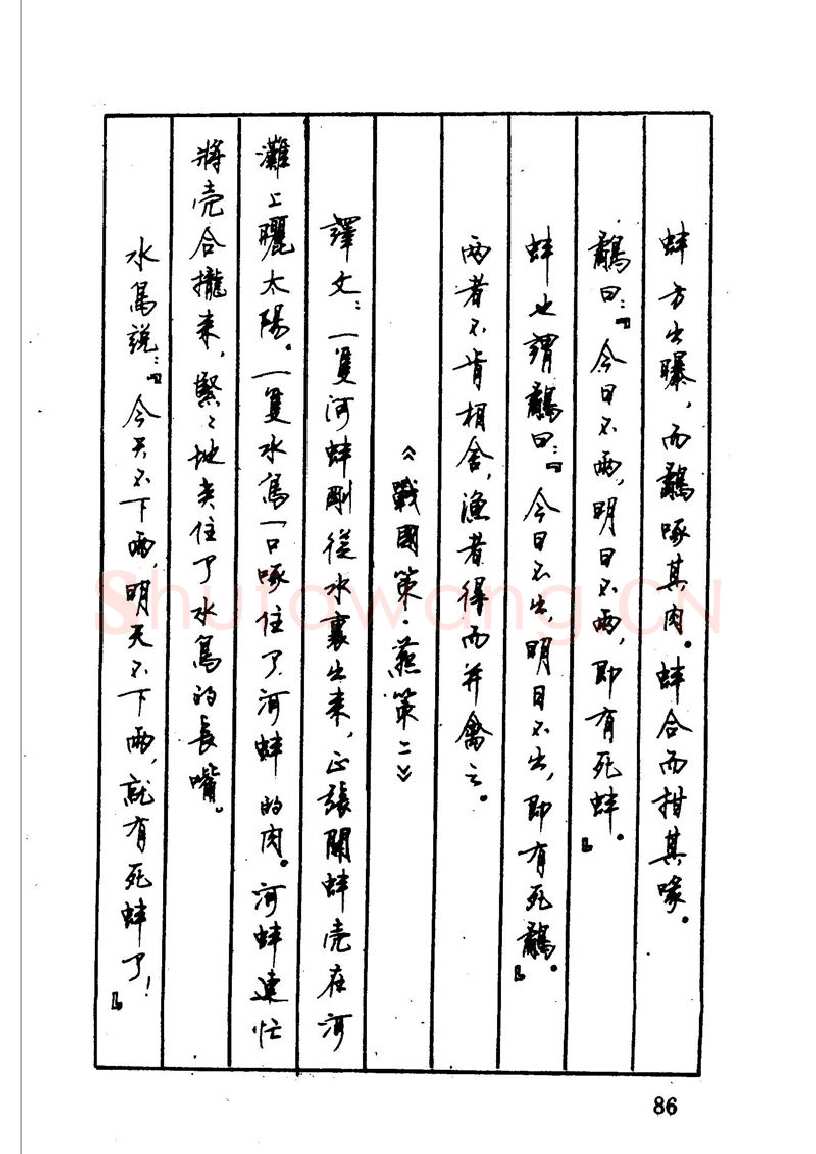 蚌方出曝，而鷸啄其肉。蚌合而拑其喙。
鷸曰：『今日不雨，明日不雨，即有死蚌。』
蚌也謂鷸曰：『今日不出，明日不出，即有死鷸。』
两者不肯相舍，漁者得而并禽之。
《戰國策·燕策二》
譯文：一隻河蚌剛從水裏出来，正張開蚌壳在河
灘上曬太陽。一隻水鳥一口啄住了河蚌的肉。河蚌連忙
將壳合攏来，緊〻地夹住了水鳥的長嘴。
水鳥説：『今天不下雨，明天不下雨，就有死蚌了！』
86
Shufawang.CN